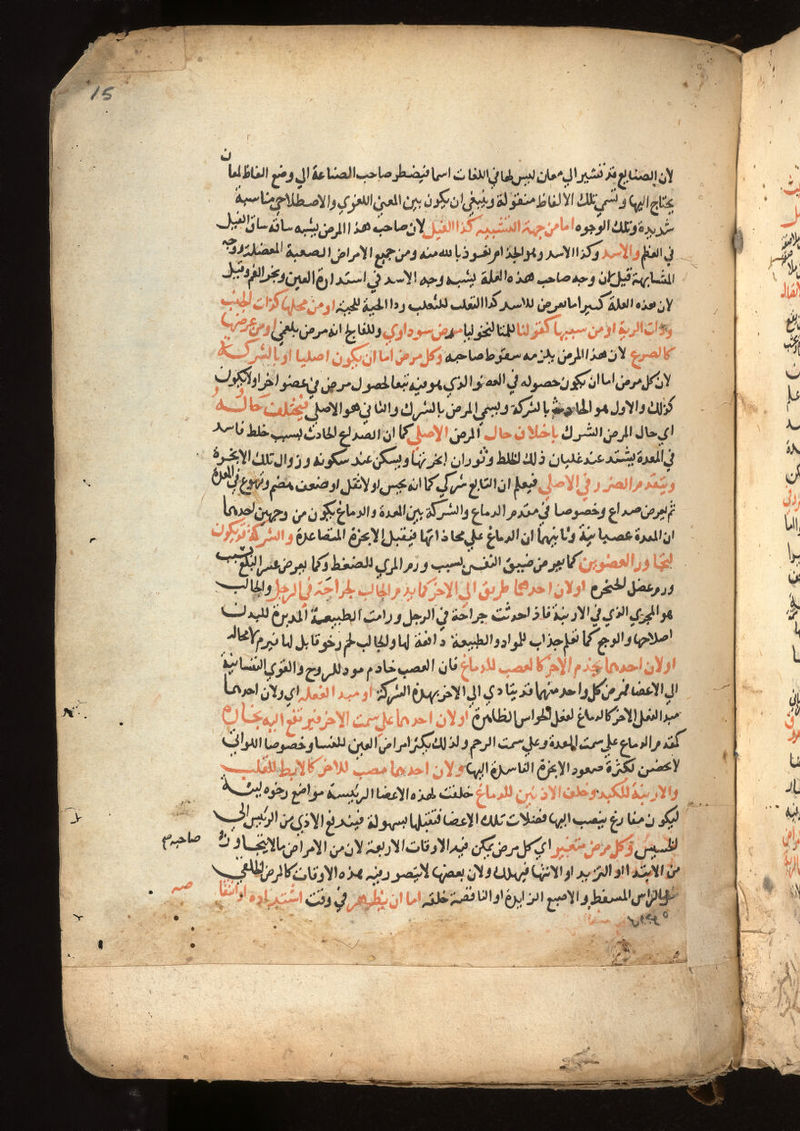 15
لان الصنايع قد تشير الى معان ليس لها في اللغات اسما فيضطر صاحب الصناعة الى وضع الفاظ لمعان
يحتاج اليها وتسمى تلك الالفاظ منقولة وينبغي ان يكون بين المعنى اللغوي والاصطلاحي مناسبة
شديدة وتلك الوجوه اما من جهة التشبيه كداا الفيل لان صاحب هذا المرض يشبه ساقه ساق الفيل
في العظم والاسد وكذا الاسد وهو الجذام نعوذ بالله منه ومن جميع الامراض الصعبة المعضلة ووجه
المشابهة قيل ان وجه صاحب هذه العلة يشبه وجه الاسد في استدارة العين وقيل
لان هذه العلة كثيرا ما تعرض للاسد كداا الثعلب للثعلب وداا الحية للحية او من محلها كذات الجنب
وذات الرية او من سببها كقولنا للمالنخوليا مرض سوداوي وللفالج انه مرض بلغمي او من عرضها
كالصرع لان هذا المرض يلزمه سقوط صاحبه وكل مرض اما ان يكون اصليا او بالشركة
لان كل مرض اما ان يكون حصوله في العضو الذي هو فيه تبعا لحصول مرض في عضو اخر او لا يكون
كذلك والاول هو الحادث بالشركة ويسمى المرض بالشرك والثاني هو الاصلي فيختلف حاله
اي حال المرض الشرك باختلاف حال المرض الاصلي كما ان الصداع الحادث بسبب خلط فاسد
في المعدة يشتد عند غليان ذلك الخلط وثوران ابخرتها ويسكن عند سكونه وزوال تلك الابخرة
ويتقدم الضرر في الاصلي فيعلم ان التابع شركي كما انه يحس اولا بثقل او ضعف هضم وتهوع في المعدة
ثم يعرض صداع وخصوصا في مقدم الدماغ والشركة بين المعدة والدماغ يكون من وجهين احدهما
ان المعدة عصبانية وثانيهما ان الدماغ على محاذاتها فيقبل الابخرة المتصاعدة والشركة قد تكون
لتجاور العضوين كما يعرض من ضيق النفس لسبب ورم المري للضغط وكما يعرض عسر البلع بسبب
ورم عضل الحنجرة او لان احدهما طريق الى الاخر كما يرم الحالب لجراحة في الرجل والحالب
هو المجرى الذي في الاربية فاذا حدثت جراحة في الرجل ورامت الطبيعة المدبرة للبدن
اصلاحها والوجع كما تعلم جذاب للمواد والطبيعة دافعة لها والحالب لحم رخو قابل لها فيرم لا محالة
او لان احدهما يخدم الاخر كالعصب للدماغ فان العصب خادم مود للروح والقوى النفسانية
الى الاعضا فمرض كل واحد منهما قد يتادى الى الاخر بهذه الشركة او مبدا لفعله اي ولان احدهما
مبدا لفعل الاخر كالدماغ لفعل الحواس الظاهرة او لان احدهما على سمت الاخر فيرتفع اليه بخاره
كمقدم الدماغ على سمت المعدة وعلى سمت الرحم ولذلك يكثر امراض العين للنسا وخصوصا اللواتي
لا يحضن لكثرة صعود الابخرة الفاسدة اليها او لان احدهما مصب للاخر كالابط للقلب
والاربية للكبد وخلف الاذنين للدماغ خلقت لهذه الاعضا الرئيسة مواضع رخوة لينة
ليكون مفارغ ينصب اليها فضلات تلك الاعضا فتقبلها بسهولة فيندفع الاذى من الرئيس الى
الخسيس وكل مرض متغير اي كل مرض يمكن فيه الاوقات الاربعة لان من الامراض ما لا يتجاوز صاحبه
من الابتداا او التزيد او الانتها فيهلك ولان بعضها لا يتصور فيه هذه الاوقات كالمرض الخلقي
الراس المسفط والاصبع الزايدة او الناقصة خلقة اما ان يظهر في وقت اشتداده او انتقاصه